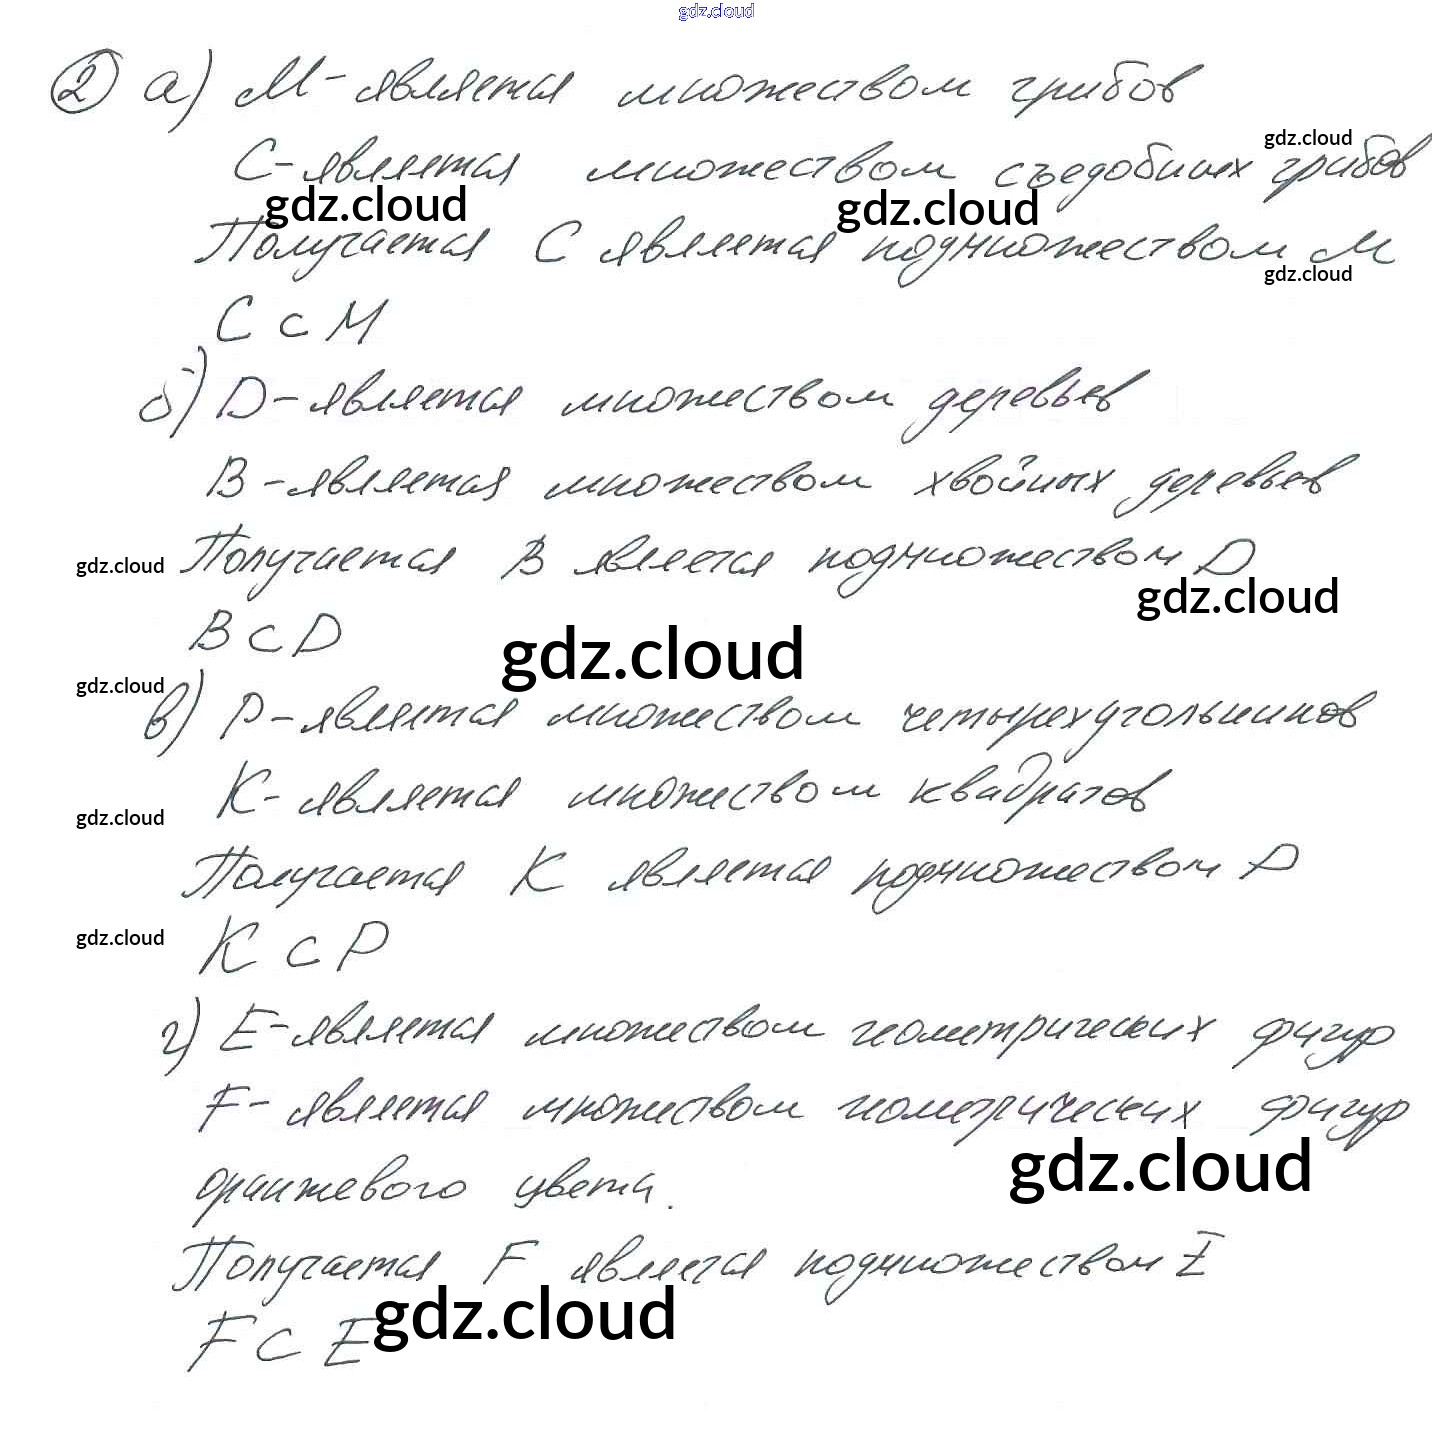 gdz.cloud
2 а) М - является множеством грибов
gdz.cloud
С - является множеством съедобных грибов
gdz.cloud gdz.cloud
Получается С является подмножеством М
gdz.cloud
С ⊂ М
б) D - является множеством деревьев
В - является множеством хвойных деревьев
gdz.cloud Получается В является подмножеством D
gdz.cloud
В ⊂ D
gdz.cloud
gdz.cloud
в) Р - является множеством четырехугольников
К - является множеством квадратов
gdz.cloud
Получается К является подмножеством Р
gdz.cloud К ⊂ Р
г) Е - является множеством геометрических фигур
F - является множеством геометрических фигур
gdz.cloud
оранжевого цвета.
Получается F является подмножеством Е
gdz.cloud
F ⊂ E